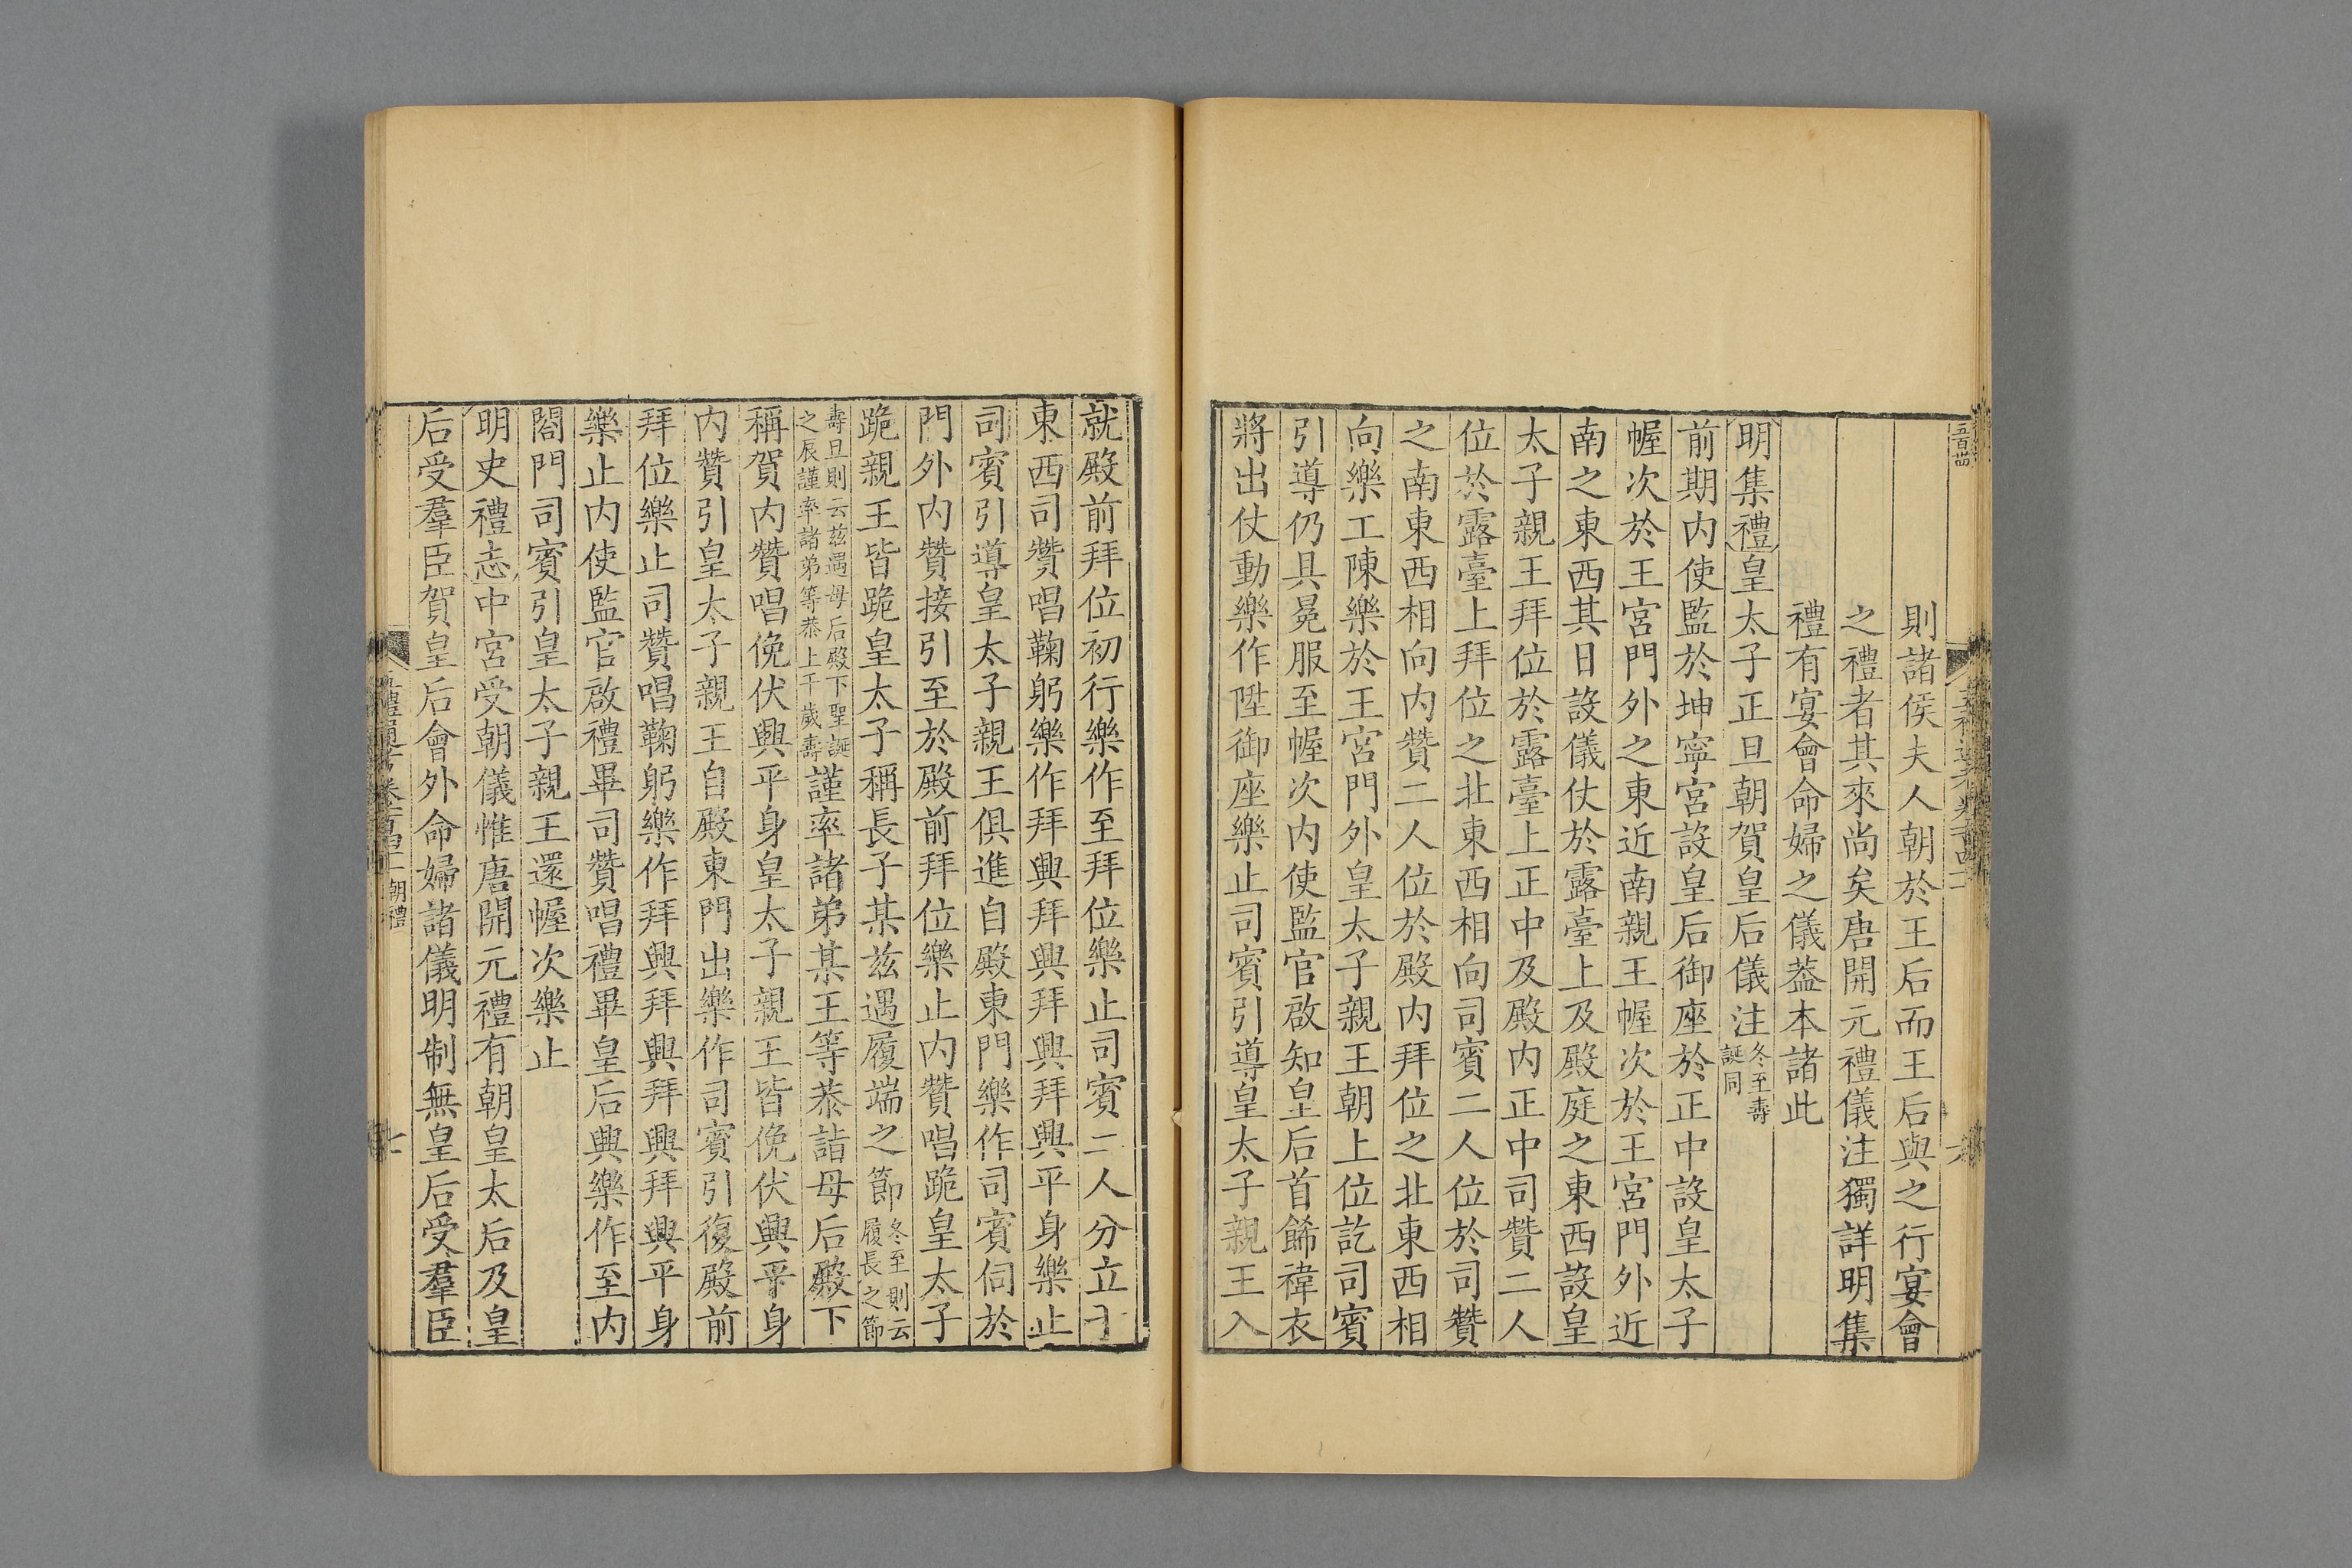 則諸侯夫人朝於王后而王后與之行宴會
之禮者其來尚矣唐開元禮儀注獨詳明集
禮有宴會命婦之儀葢本諸此
明集禮皇太子正旦朝賀皇后儀注冬至壽誕同
前期内使監於坤寧宮設皇后御座於正中設皇太子
幄次於王宮門外之東近南親王幄次於王宮門外近
南之東西其日設儀仗於露臺上及殿庭之東西設皇
太子親王拜位於露臺上正中及殿内正中司贊二人
位於露臺上拜位之北東西相向司賓二人位於司贊
之南東西相向内贊二人位於殿内拜位之北東西相
向樂工陳樂於王宮門外皇太子親王朝上位訖司賓
引導仍具冕服至幄次内使監官啟知皇后首餙褘衣
將出仗動樂作陞御座樂止司賓引導皇太子親王入
就殿前拜位初行樂作至拜位樂止司賓二人分立于
東西司贊唱鞠躬樂作拜興拜興拜興拜興平身樂止
司賓引導皇太子親王俱進自殿東門樂作司賓伺於
門外内贊接引至於殿前拜位樂止内贊唱跪皇太子
跪親王皆跪皇太子稱長子某兹遇履端之節冬至則云履長之節
壽旦則云兹遇母后殿下聖誕之辰謹率諸弟等恭上千歲壽謹率諸弟某王等恭詣母后殿下
稱賀内贊唱俛伏興平身皇太子親王皆俛伏興平身
内贊引皇太子親王自殿東門出樂作司賓引復殿前
拜位樂止司贊唱鞠躬樂作拜興拜興拜興拜興平身
樂止内使監官啟禮畢司贊唱禮畢皇后興樂作至内
閤門司賓引皇太子親王還幄次樂止
明史禮志中宮受朝儀惟唐開元禮有朝皇太后及皇
后受羣臣賀皇后會外命婦諸儀明制無皇后受羣臣
五禮通考卷一百四十一 朝禮